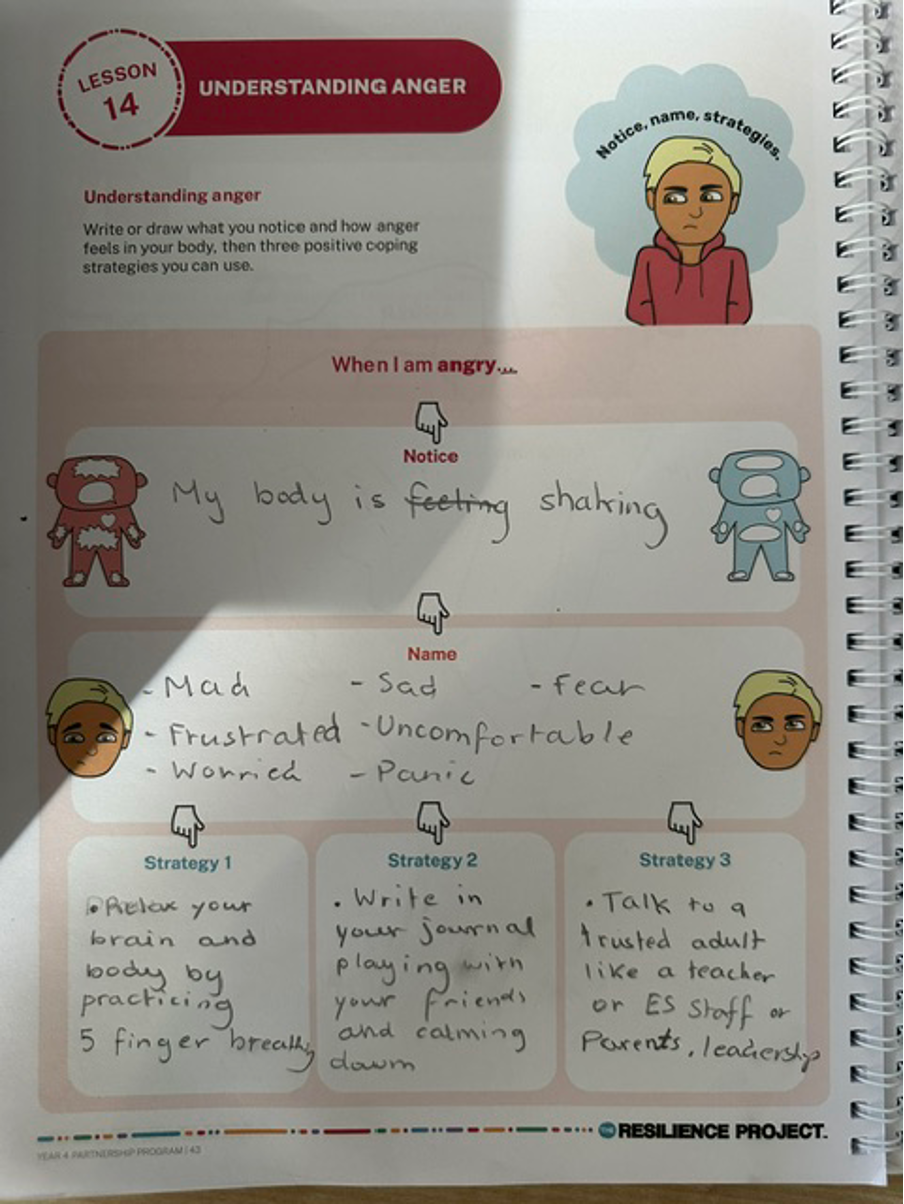 LESSON
14
UNDERSTANDING ANGER
Notice, name, strategies.
Understanding anger
Write or draw what you notice and how anger
feels in your body, then three positive coping
strategies you can use.
When I am angry...
Notice
My body is feeling shaking
Name
- Mad - Sad - Fear
- Frustrated - Uncomfortable
- Worried - Panic
Strategy 1
• Relax your
brain and
body by
practicing
5 finger breathing
Strategy 2
• Write in
your journal
playing with
your friends
and calming
down
Strategy 3
• Talk to a
trusted adult
like a teacher
or ES Staff or
Parents, leadership
THE RESILIENCE PROJECT.
YEAR 4 PARTNERSHIP PROGRAM | 43